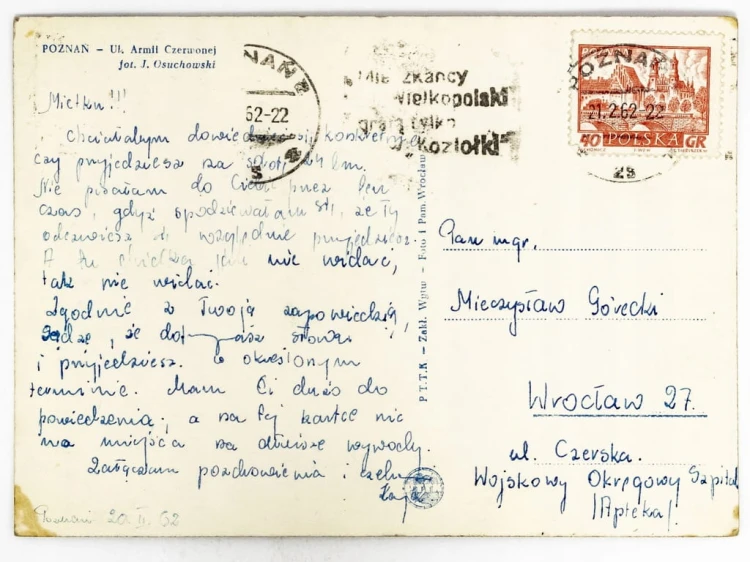 POZNAŃ – Ul. Armii Czerwonej
fot. J. Osuchowski
POZNAŃ 2
62-22
Mieszkańcy
Wielkopolski
grają tylko
w „Koziołki”
POZNAŃ
21.2.62-22
40 POLSKA GR
Mietku!!!
Chciałabym dowiedzieć się konkretnie
czy przyjedziesz za 24 km.
Nie pisałam do Ciebie przez ten
czas, gdyż spodziewałam się, że Ty
odezwiesz się względnie przyjedziesz.
A tu nie widać,
jak nie widać.
Zgodnie z Twoją zapowiedzią,
sądzę, że dotrzymasz słowa
i przyjedziesz w określonym
terminie. Mam Ci dużo do
powiedzenia, a na tej kartce nie
ma miejsca na dłuższe wywody.
Załączam pozdrowienia i
Poznań 20 II 62
P.T.T.K – Zakł. Wytw. – Foto i Pam. Wrocław
Pan mgr.
Mieczysław Górecki
Wrocław 27.
ul. Czerska.
Wojskowy Okręgowy Szpital
/Apteka/.